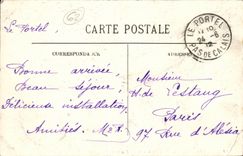 62
Le Portel
CARTE POSTALE
LE PORTEL
24 -8
12
PAS DE CALAIS
CORRESPONDANCE
Bonne arrivée,
Beau séjour,
Délicieuse installation,
Amitiés.
Monsieur
de Lestang
Paris
97 Rue d'Alésia